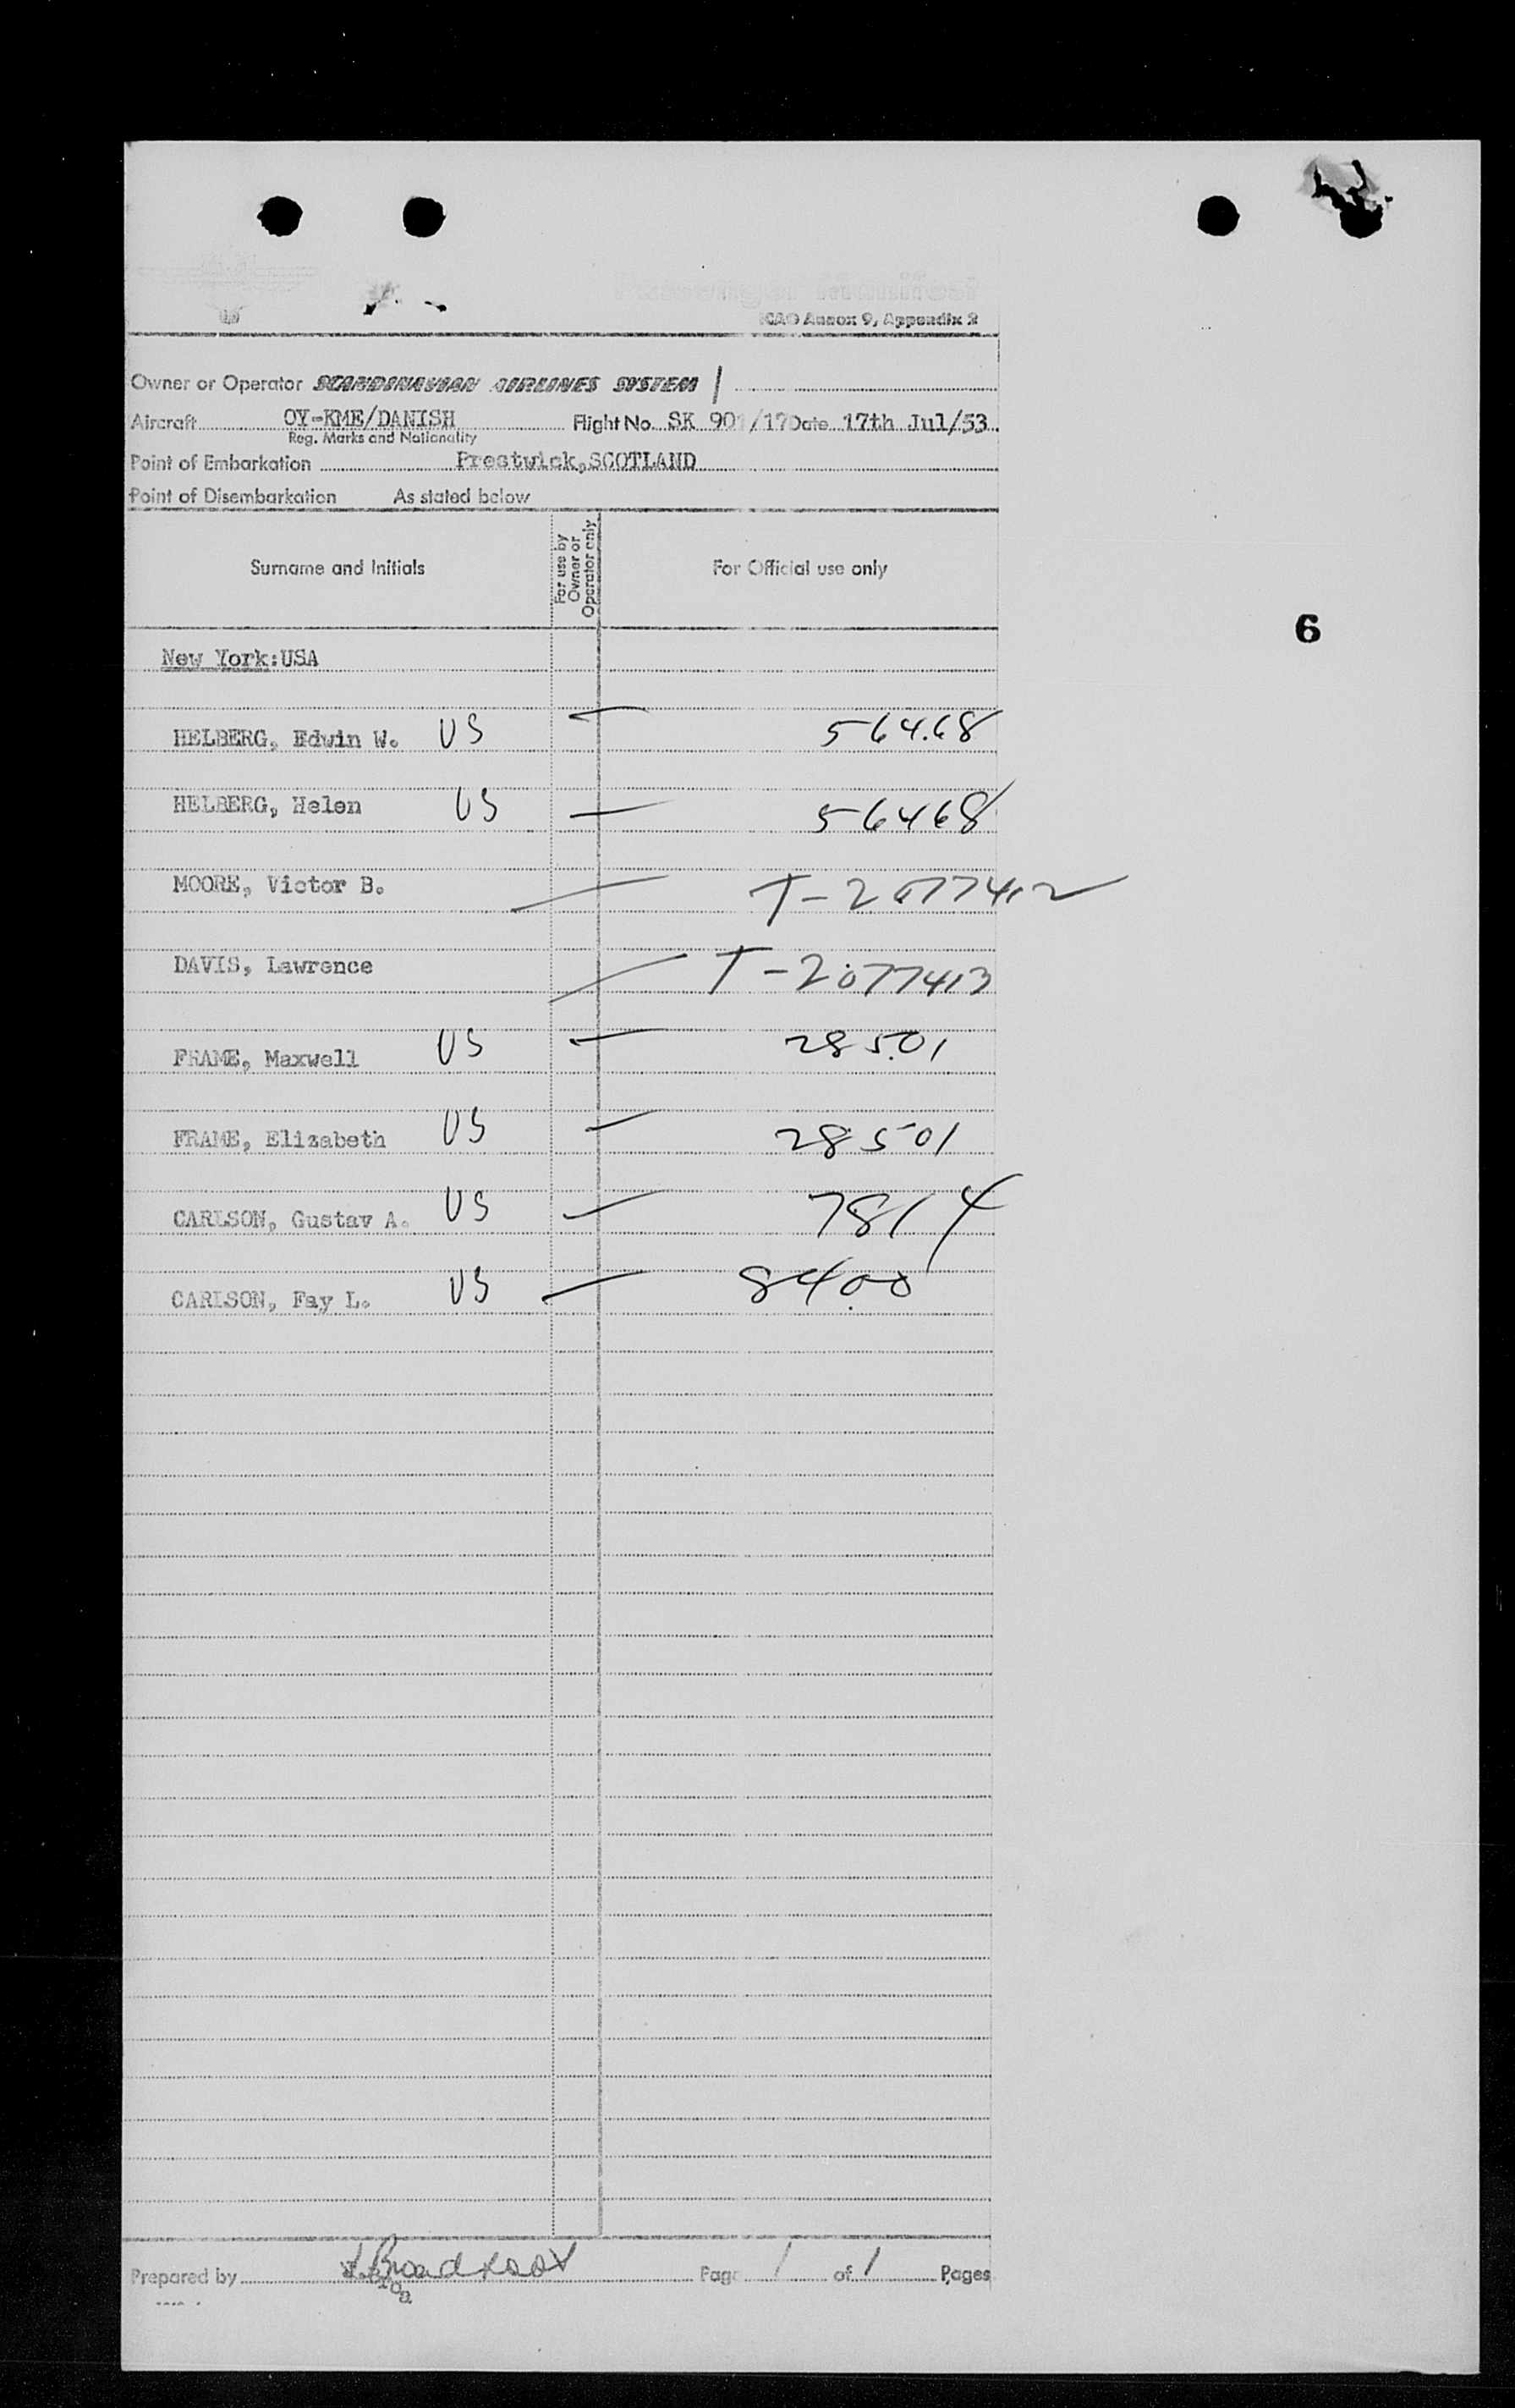 ICAO Annex 9, Appendix 2
Owner or Operator SCANDINAVIAN AIRLINES SYSTEM
Aircraft OY-KME/DANISH Flight No. SK 901/17 Date 17th Jul/53
Reg. Marks and Nationality
Point of Embarkation Prestwick,SCOTLAND
Point of Disembarkation As stated below
Surname and Initials For use by Owner or Operator only For Official use only
6
New York:USA
HELBERG, Edwin W. US 564.68
HELBERG, Helen US 56468
MOORE, Victor B. T-2077412
DAVIS, Lawrence T-2077413
FRAME, Maxwell US 285.01
FRAME, Elizabeth US 28501
CARLSON, Gustav A. US 7814
CARLSON, Fay L. US 84.00
Prepared by Page 1 of 1 Pages